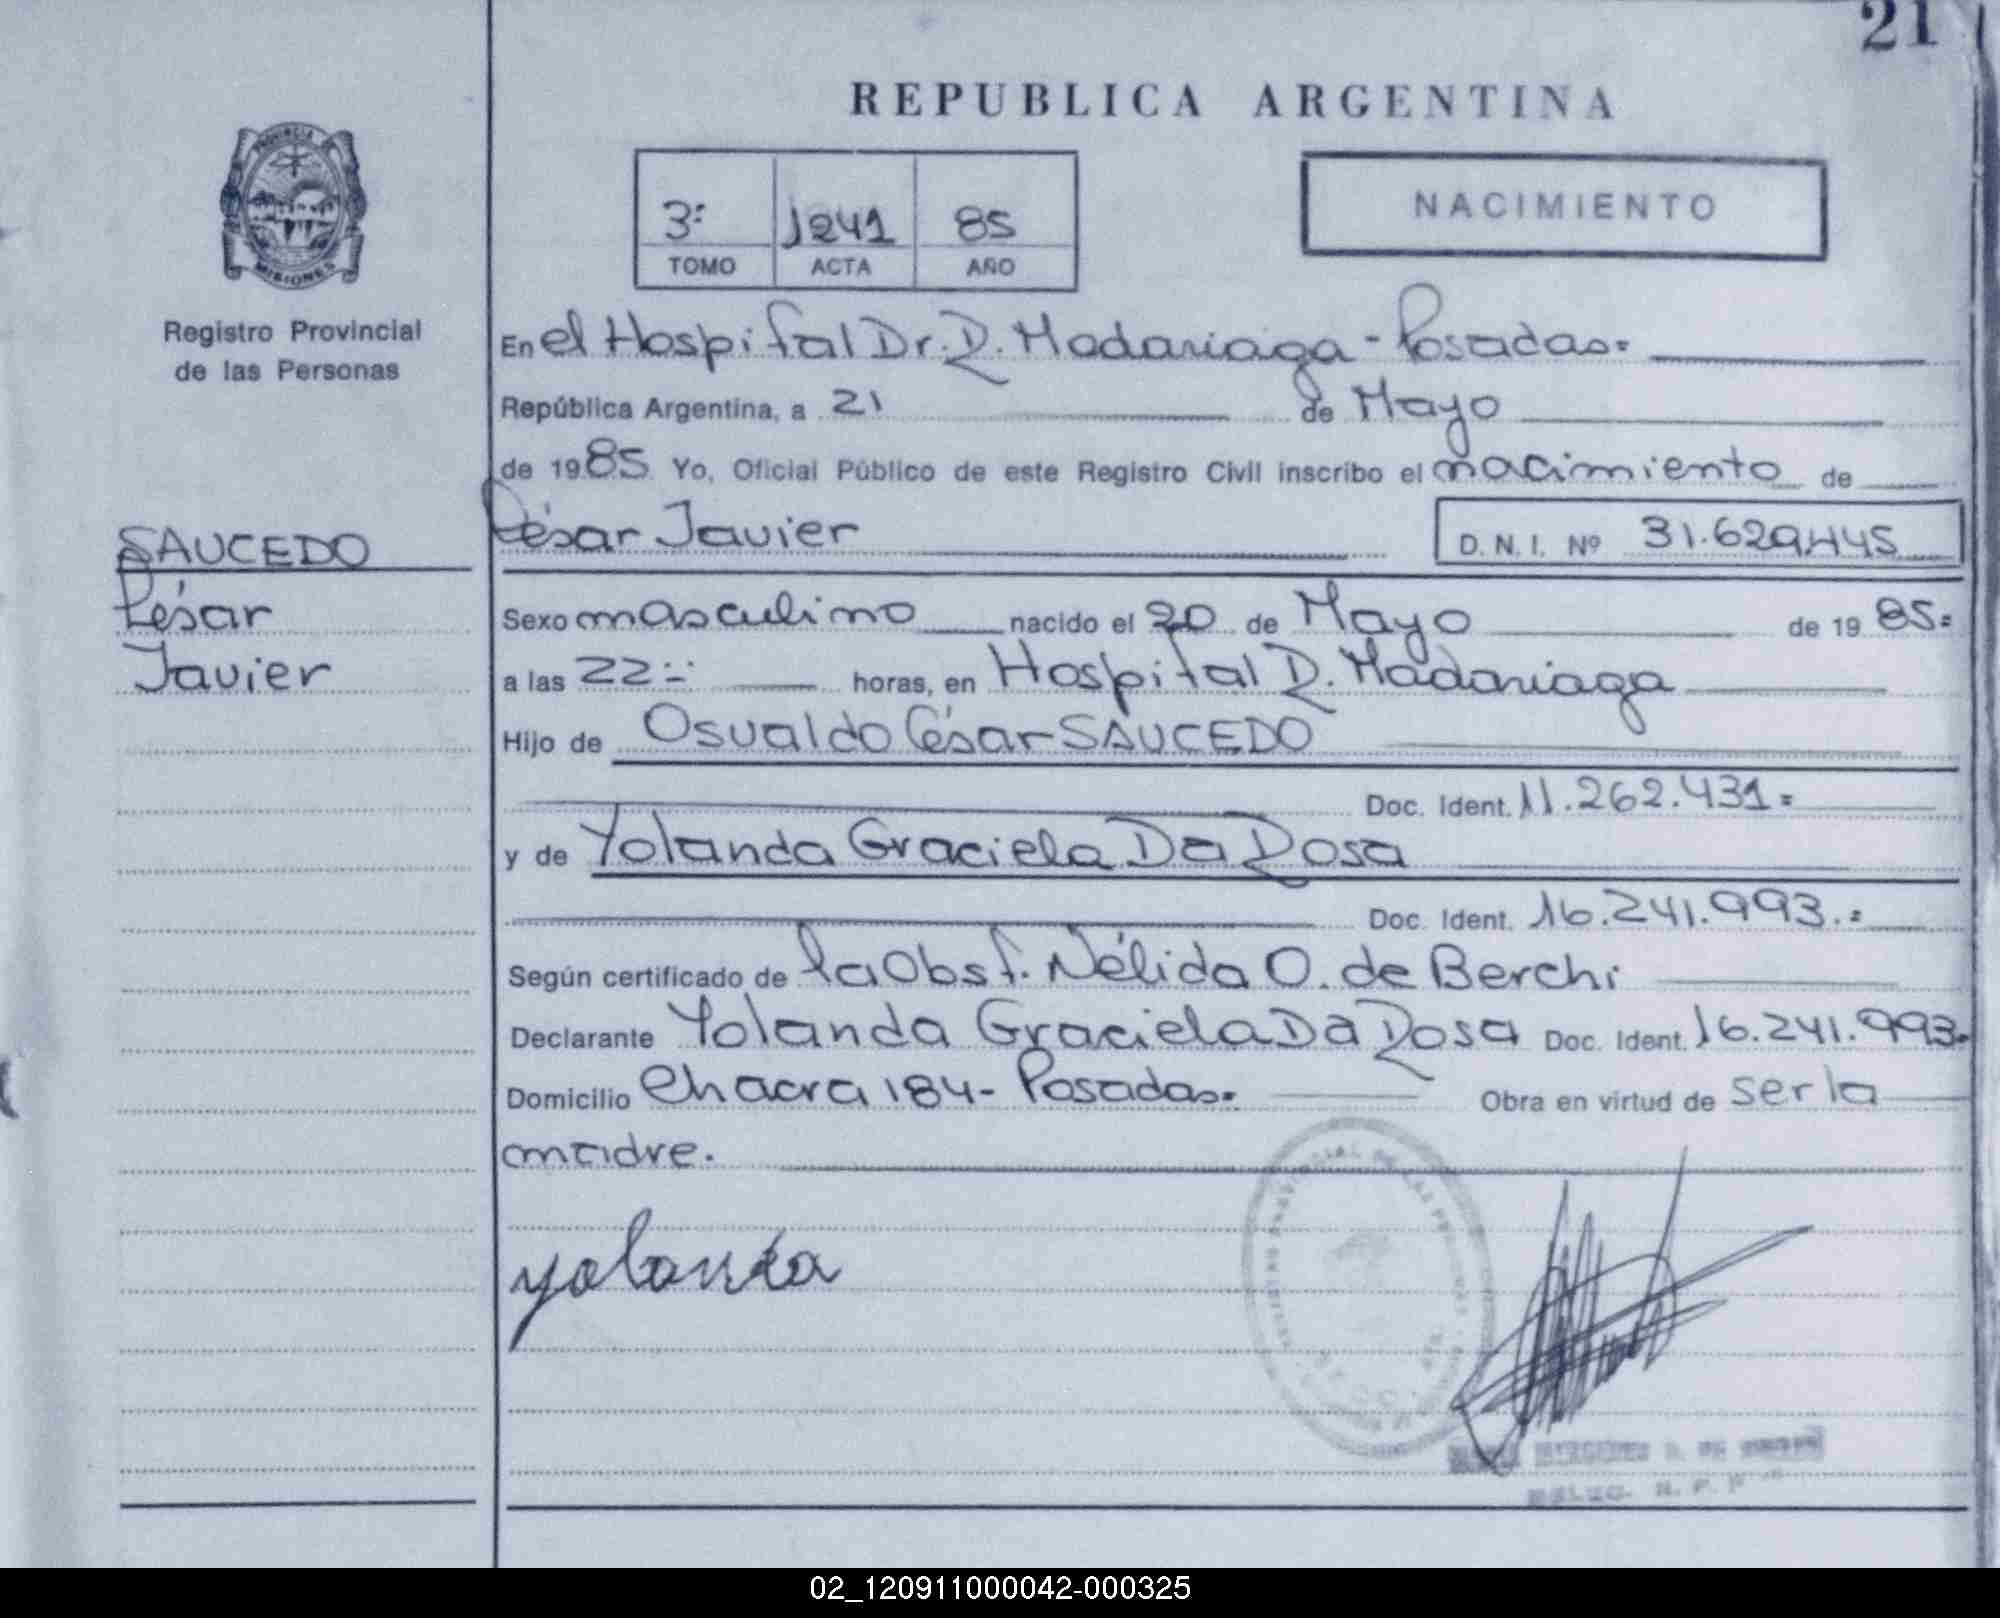 21
REPUBLICA ARGENTINA
PROVINCIA
MISIONES
3º 1241 85
TOMO ACTA AÑO
NACIMIENTO
Registro Provincial
de las Personas
En el Hospital Dr. R. Madariaga - Posadas.
República Argentina, a 21 de Mayo
de 1985 Yo, Oficial Público de este Registro Civil inscribo el nacimiento de
César Javier D. N. I. Nº 31.629.445
SAUCEDO
César
Javier
Sexo masculino nacido el 20 de Mayo de 1985.
a las 22 horas, en Hospital R. Madariaga
Hijo de Osvaldo César SAUCEDO
Doc. Ident. 11.262.431.
y de Yolanda Graciela Da Rosa
Doc. Ident. 16.241.993.
Según certificado de la Obst. Nélida O. de Berchi
Declarante Yolanda Graciela Da Rosa Doc. Ident. 16.241.993.
Domicilio Chacra 184 - Posadas. Obra en virtud de ser la
madre.
yolanda
02_120911000042-000325